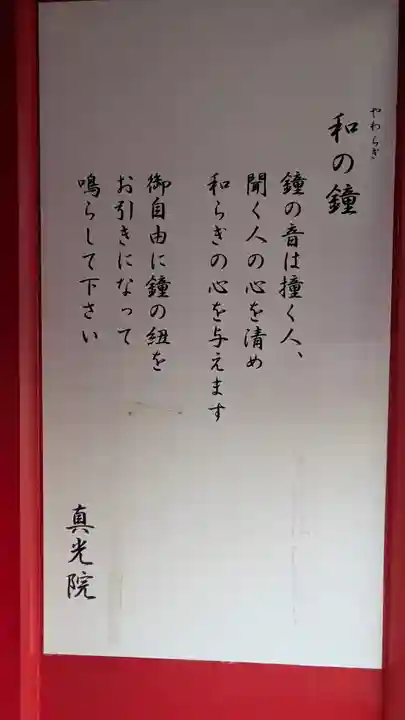 やわらぎ
和の鐘
鐘の音は撞く人、
聞く人の心を清め
和らぎの心を与えます
御自由に鐘の紐を
お引きになって
鳴らして下さい
真光院